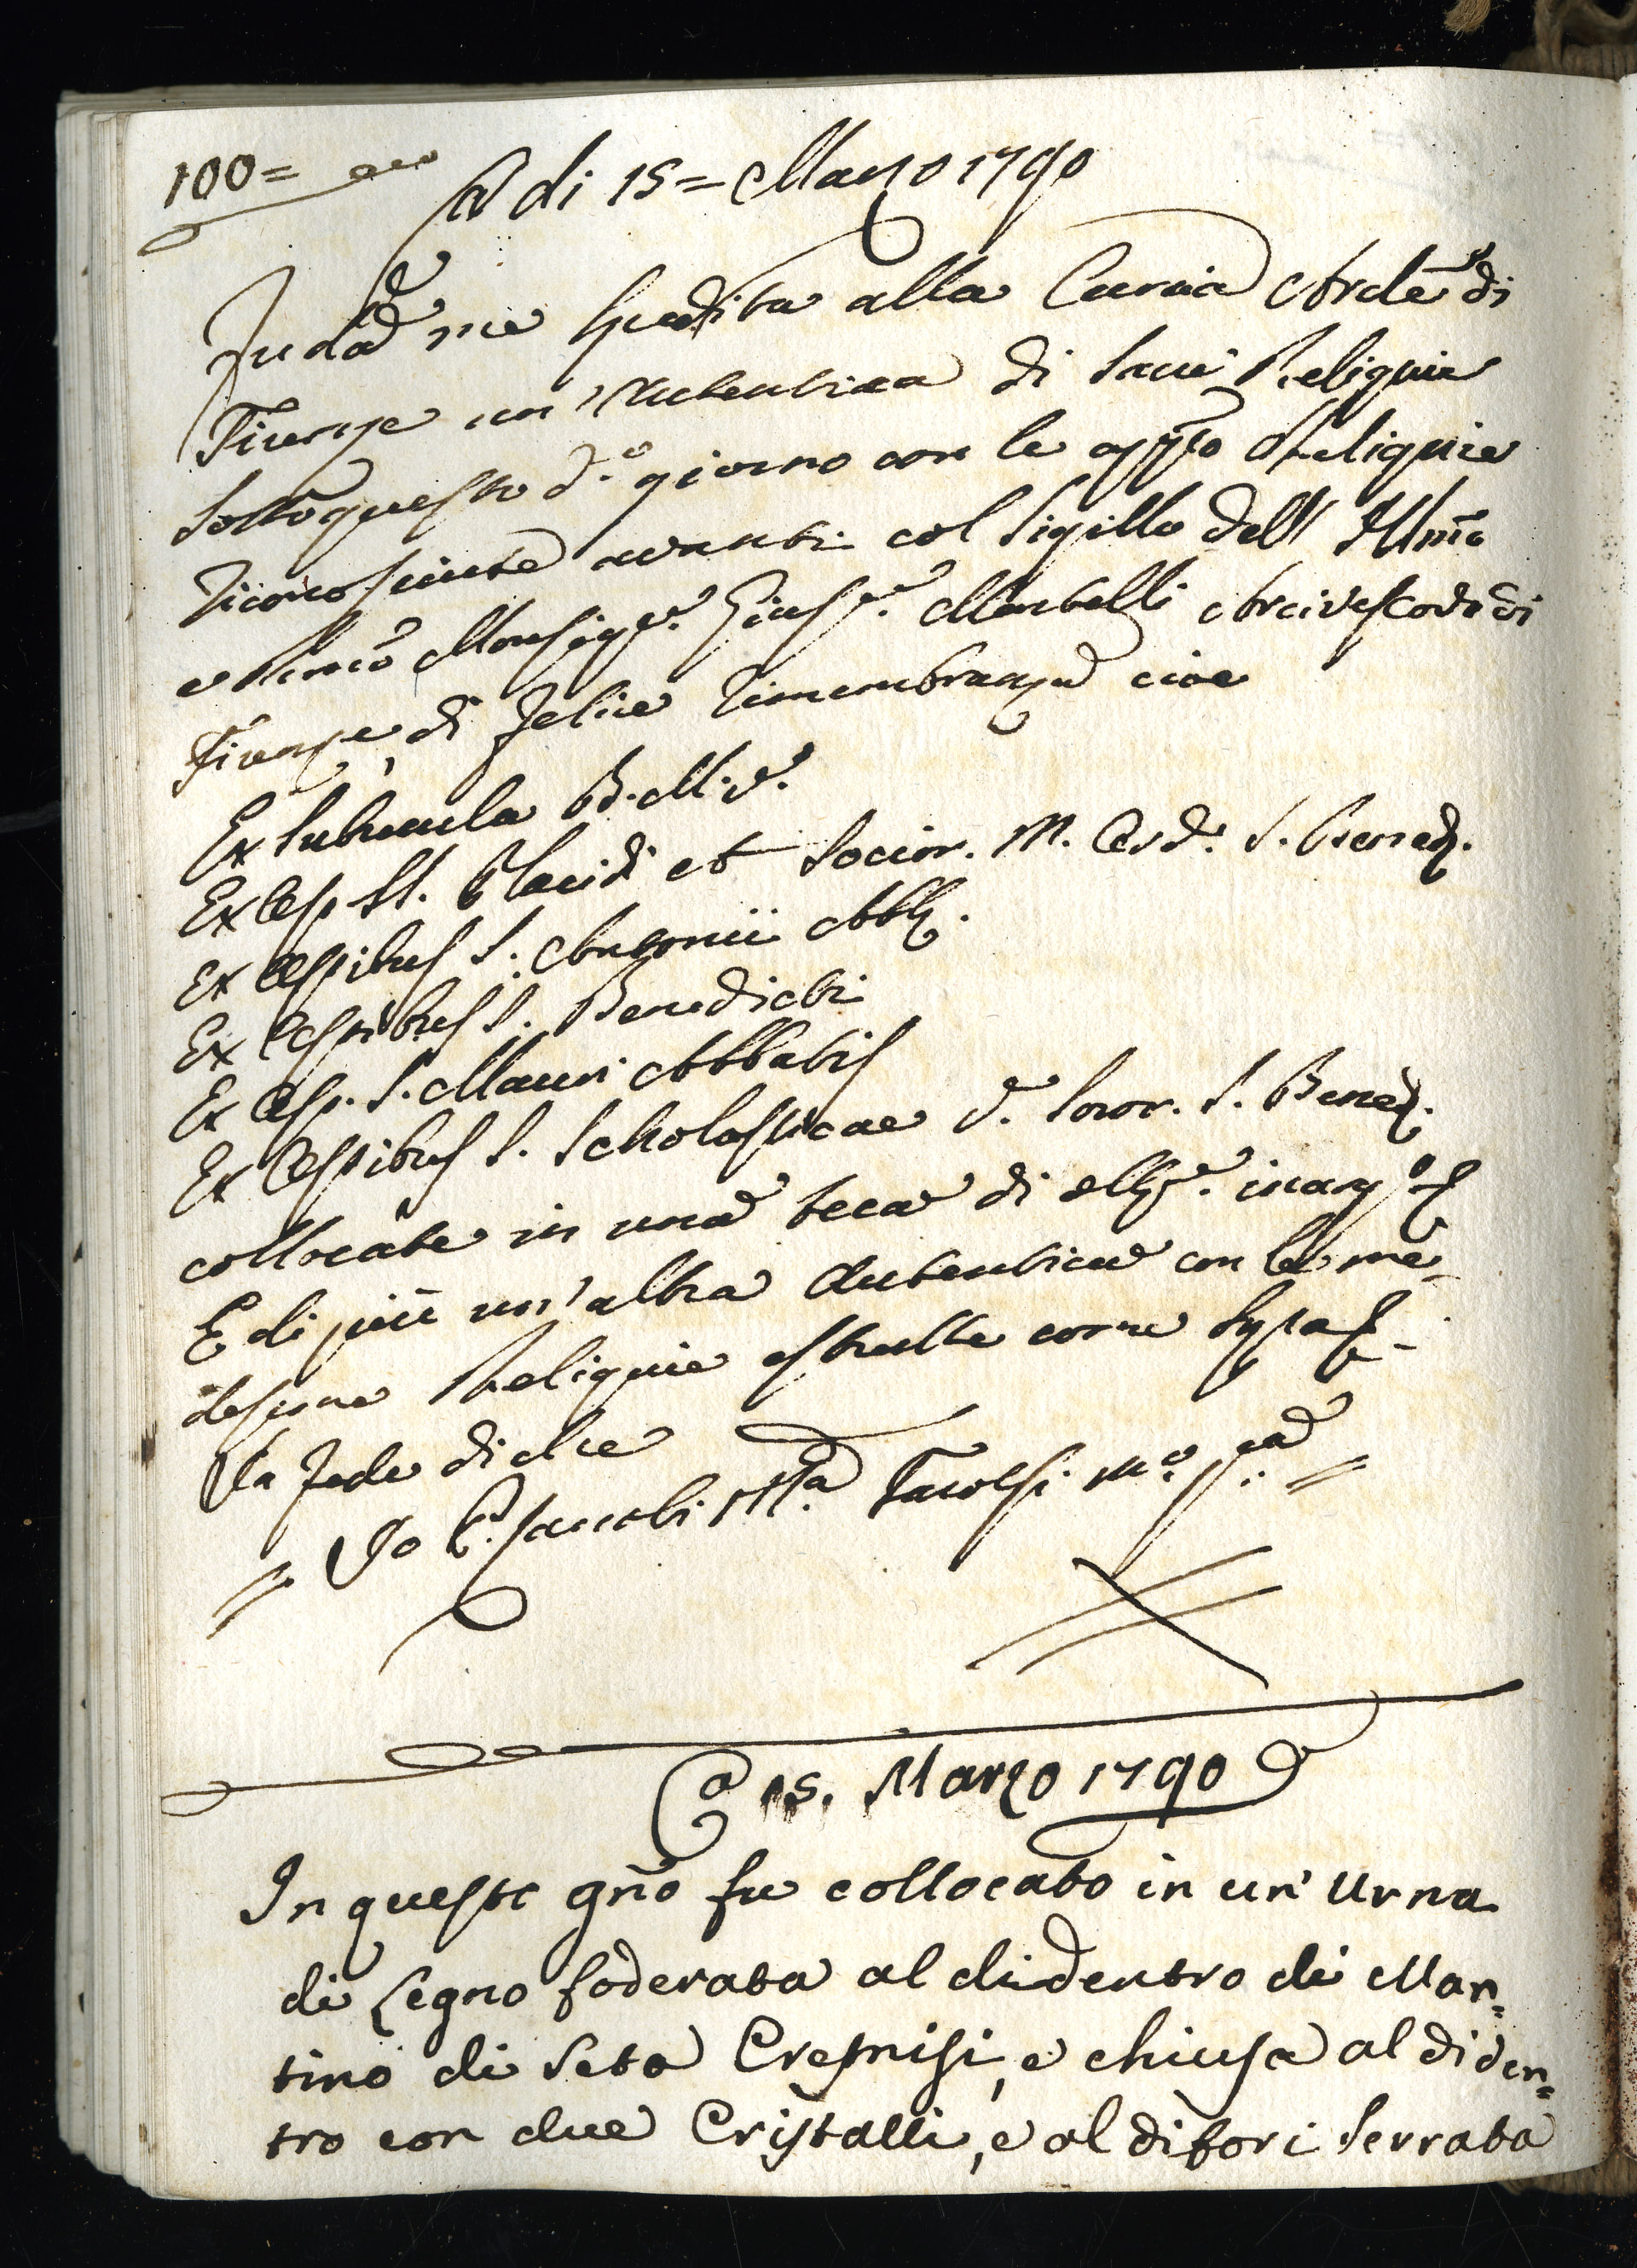 100=
A di 15= Marzo 1790
Fu da me spedita alla Curia Arcle di
Firenze un'Autentica di Sacre Reliquie
sotto questo d.o giorno con le appo Reliquie
riconosciute avanti col Sigillo dell Illmo
e Rmo Monsigr. Giuse. Martelli Arcivescovo di
Firenze, di felice rimembranza cioe
Ex Subucula B. M. V.
Ex Oss. SS. Placidi et Socior. M. Ord. S. Bened.
Ex Ossibus S. Antonii Abb.
Ex Ossibus S. Benedicti
Ex Oss. S. Mauri Abbatis
Ex Ossibus S. Scholasticae V. Soror. S. Bened.
collocate in una teca di
E di più un'altra Autentica con le me-
desime Reliquie estratte come sopa
In fede di che
= Io P. Ma Tacolsi mo. pa. =
A 15. Marzo 1790
In questo gno fu collocato in un' Urna
di Legno foderata al didentro di Man=
tino di Seta Cremisi, e chiusa al diden=
tro con due Cristalli, e al difori serrata